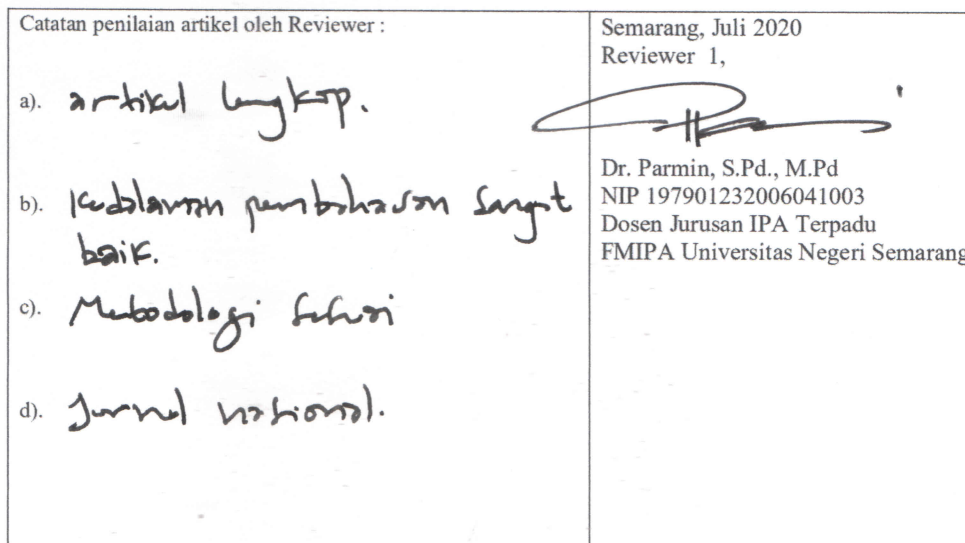 Catatan penilaian artikel oleh Reviewer :
a). artikel lengkap.
b). Kedalaman pembahasan sangat
baik.
c). Metodologi sesuai
d). Jurnal nasional.
Semarang, Juli 2020
Reviewer 1,
Dr. Parmin, S.Pd., M.Pd
NIP 197901232006041003
Dosen Jurusan IPA Terpadu
FMIPA Universitas Negeri Semarang